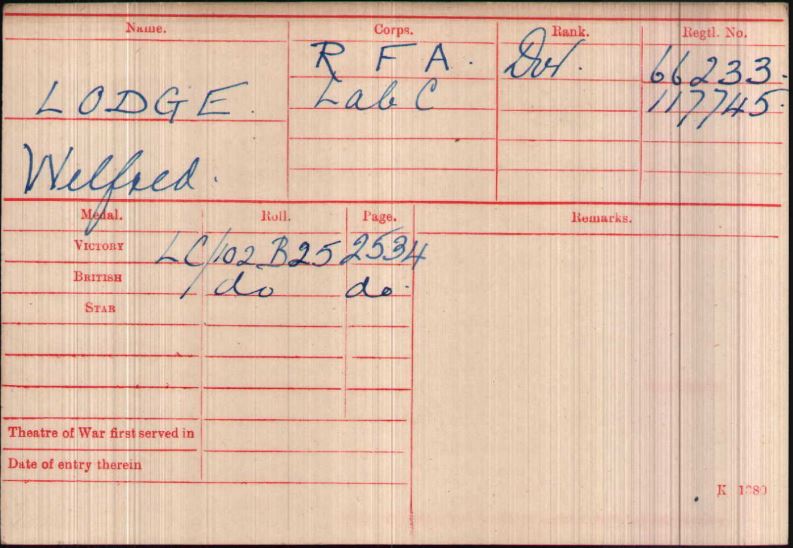 Name. Corps. Rank. Regtl. No.
R F A. Dvr. 66233.
LODGE. Lab C 117745.
Wilfred.
Medal. Roll. Page. Remarks.
VICTORY LC/102 B25 2534
BRITISH do do.
STAR
Theatre of War first served in
Date of entry therein
K 1380